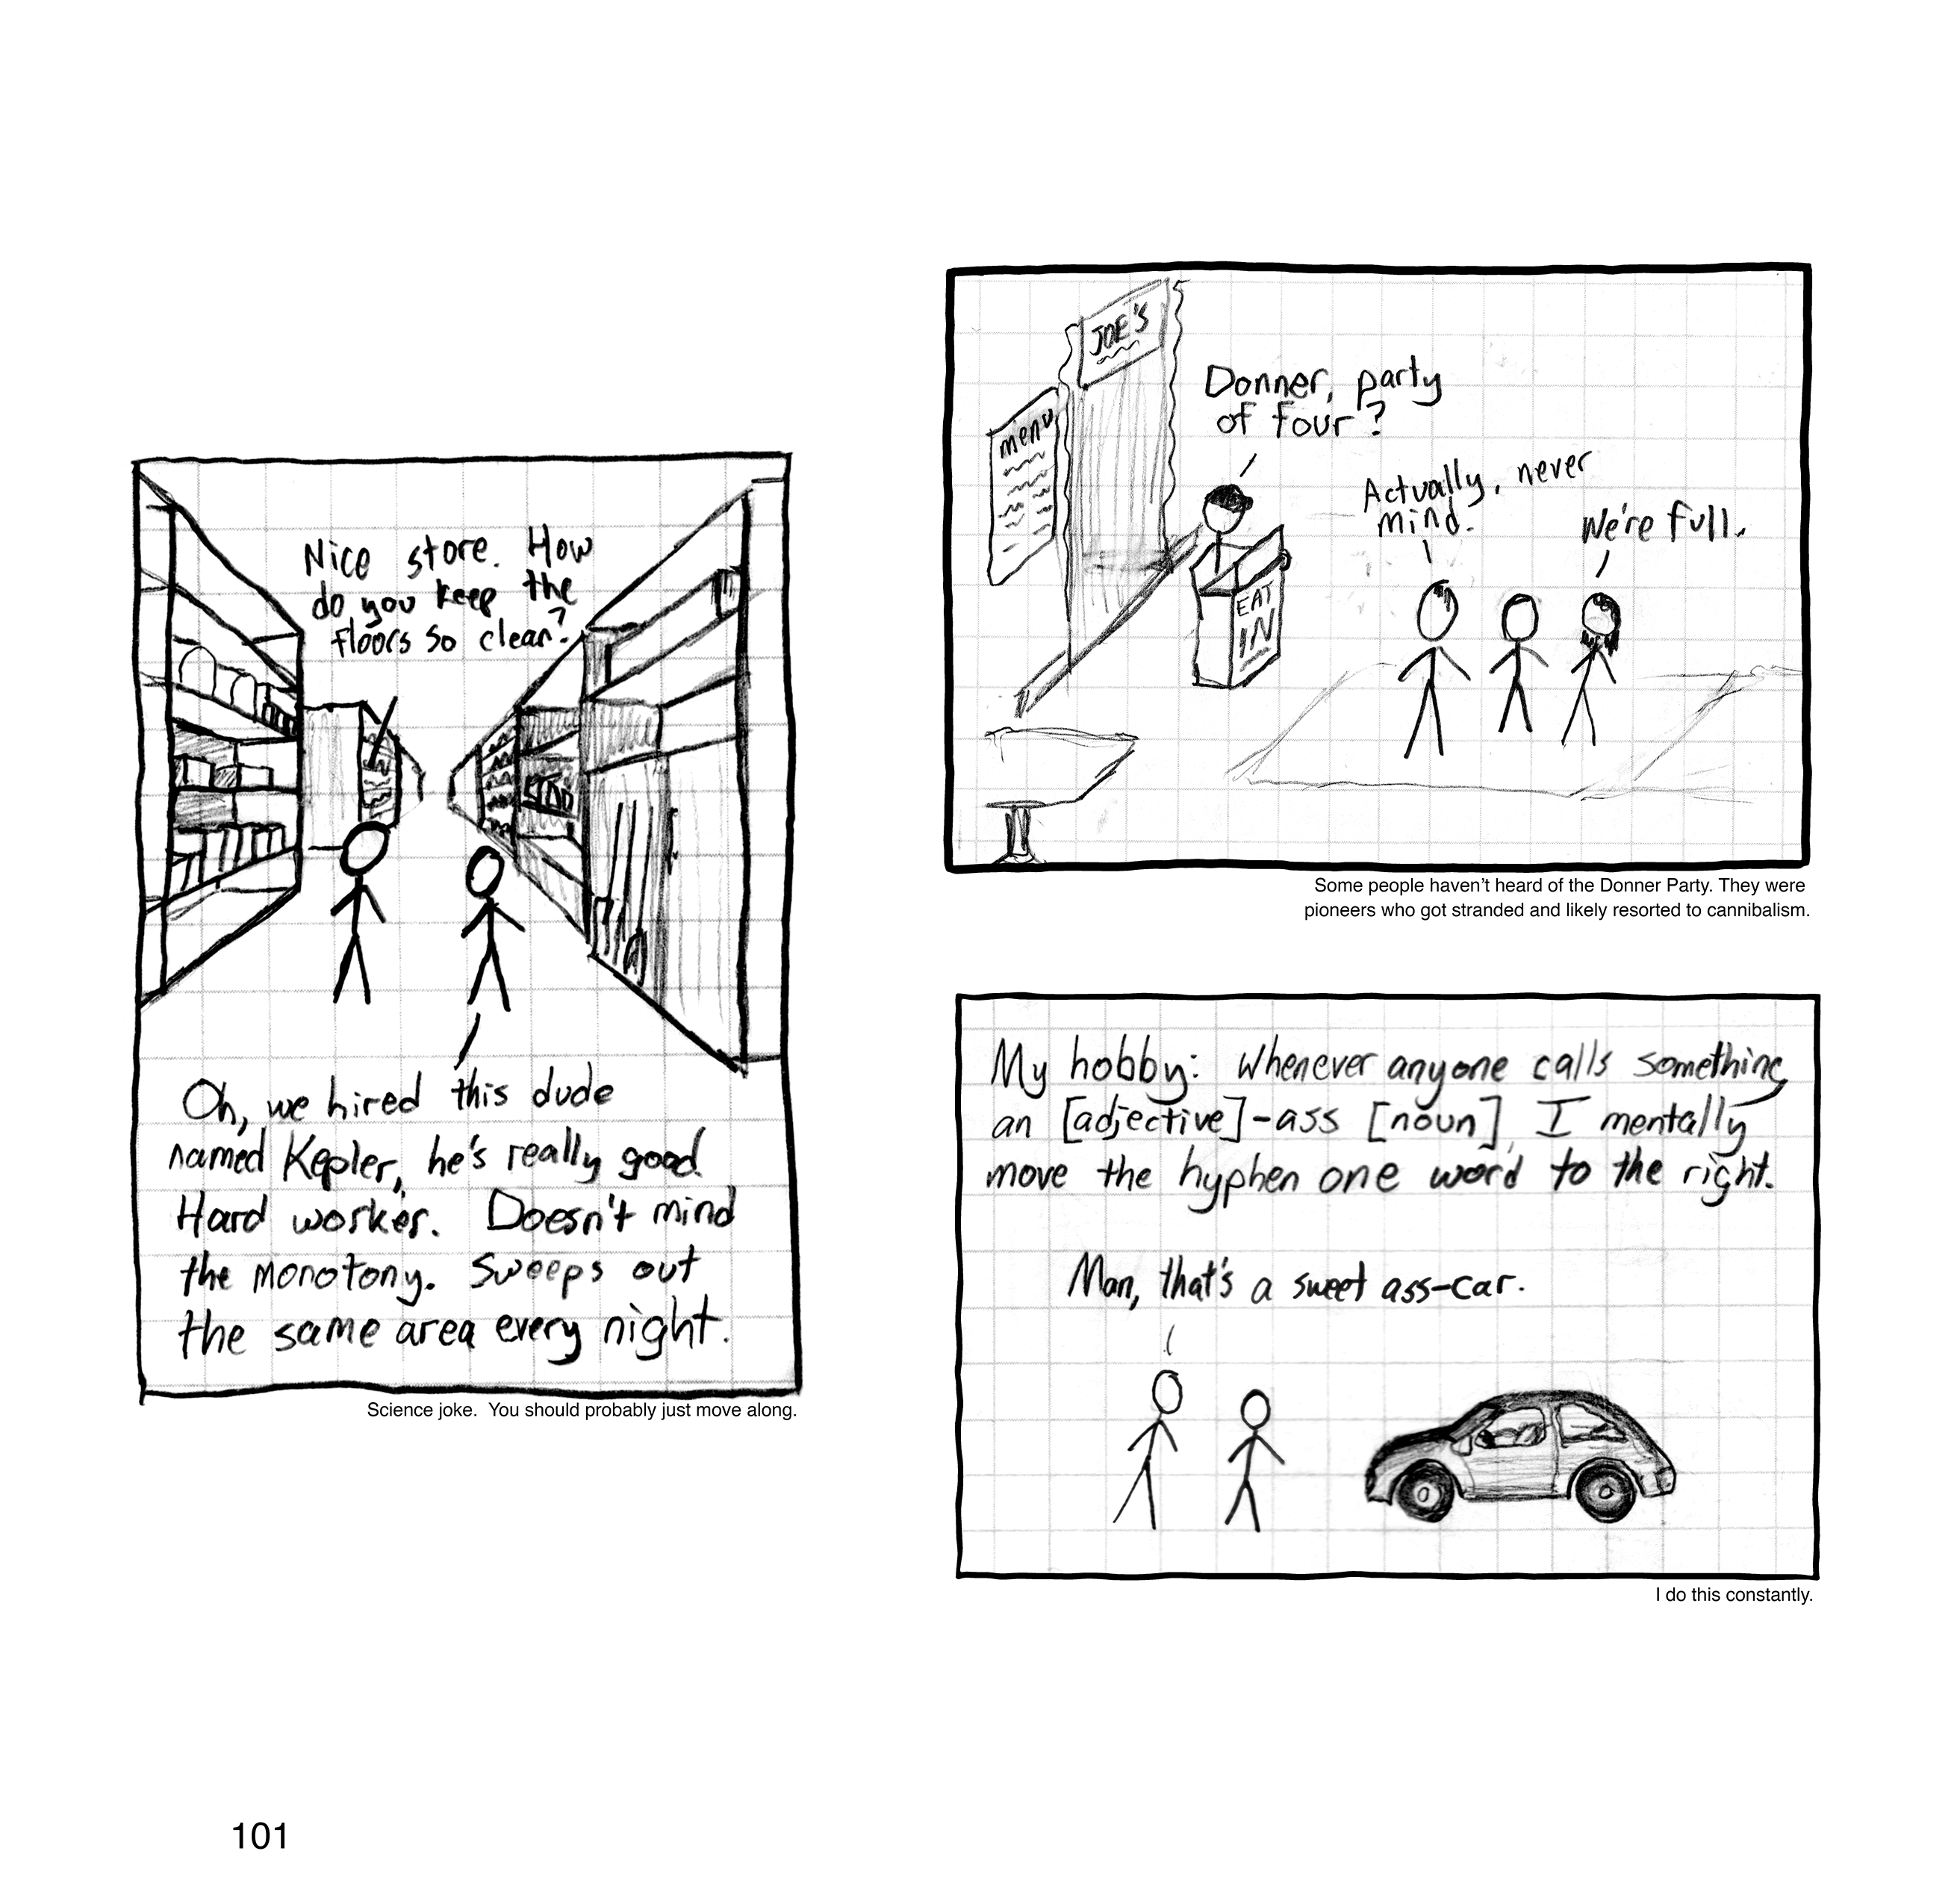 Nice store. How
do you keep the
floors so clean?
Oh, we hired this dude
named Kepler, he's really good.
Hard worker. Doesn't mind
the monotony. Sweeps out
the same area every night.
Science joke. You should probably just move along.
JOE'S
menu
Donner, party
of four?
EAT
IN
Actually, never
mind.
We're full.
Some people haven't heard of the Donner Party. They were
pioneers who got stranded and likely resorted to cannibalism.
My hobby: Whenever anyone calls something
an [adjective]-ass [noun], I mentally
move the hyphen one word to the right.
Man, that's a sweet ass-car.
I do this constantly.
101